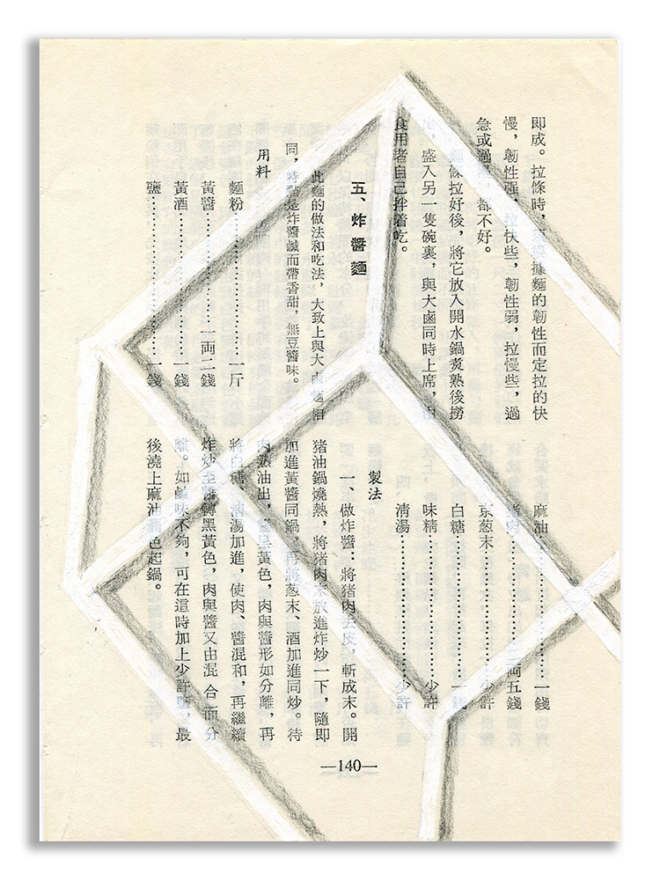 即成。拉條時，據麵的韌性而定拉的快
慢，韌性强，拉快些，韌性弱，拉慢些，過
急或過都不好。
條拉好後，將它放入開水鍋煑熟後撈
，盛入另一隻碗裏，與大鹵同時上席，由
食用者自己拌着吃。
五、炸醬麵
此麵的做法和吃法，大致上與大鹵麵相
同，特點是炸醬鹹而帶香甜，無豆醬味。
用料
麵粉…………………一斤
黃醬…………………一両二錢
黃酒…………………一錢
鹽……………………一錢
麻油…………………一錢
肉…………………両五錢
京葱末………………少許
白糖…………………一錢
味精…………………少許
清湯…………………少許
製法
一、做炸醬：將猪肉去皮，斬成末。開
猪油鍋燒熱，將猪肉末放進炸炒一下，隨即
加進黃醬同鍋，再將葱末、酒加進同炒。待
肉熟油出，醬呈黃色，肉與醬形如分離，再
將白糖、清湯加進，使肉、醬混和，再繼續
炸炒至醬轉黑黃色，肉與醬又由混合而分
離。如鹹味不夠，可在這時加上少許鹽，最
後澆上麻油色起鍋。
—140—